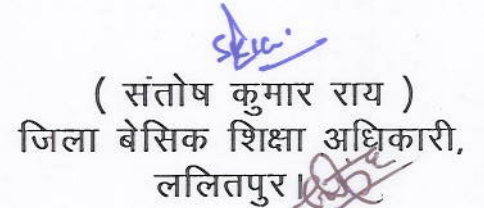 ( संतोष कुमार राय )
जिला बेसिक शिक्षा अधिकारी,
ललितपुर।